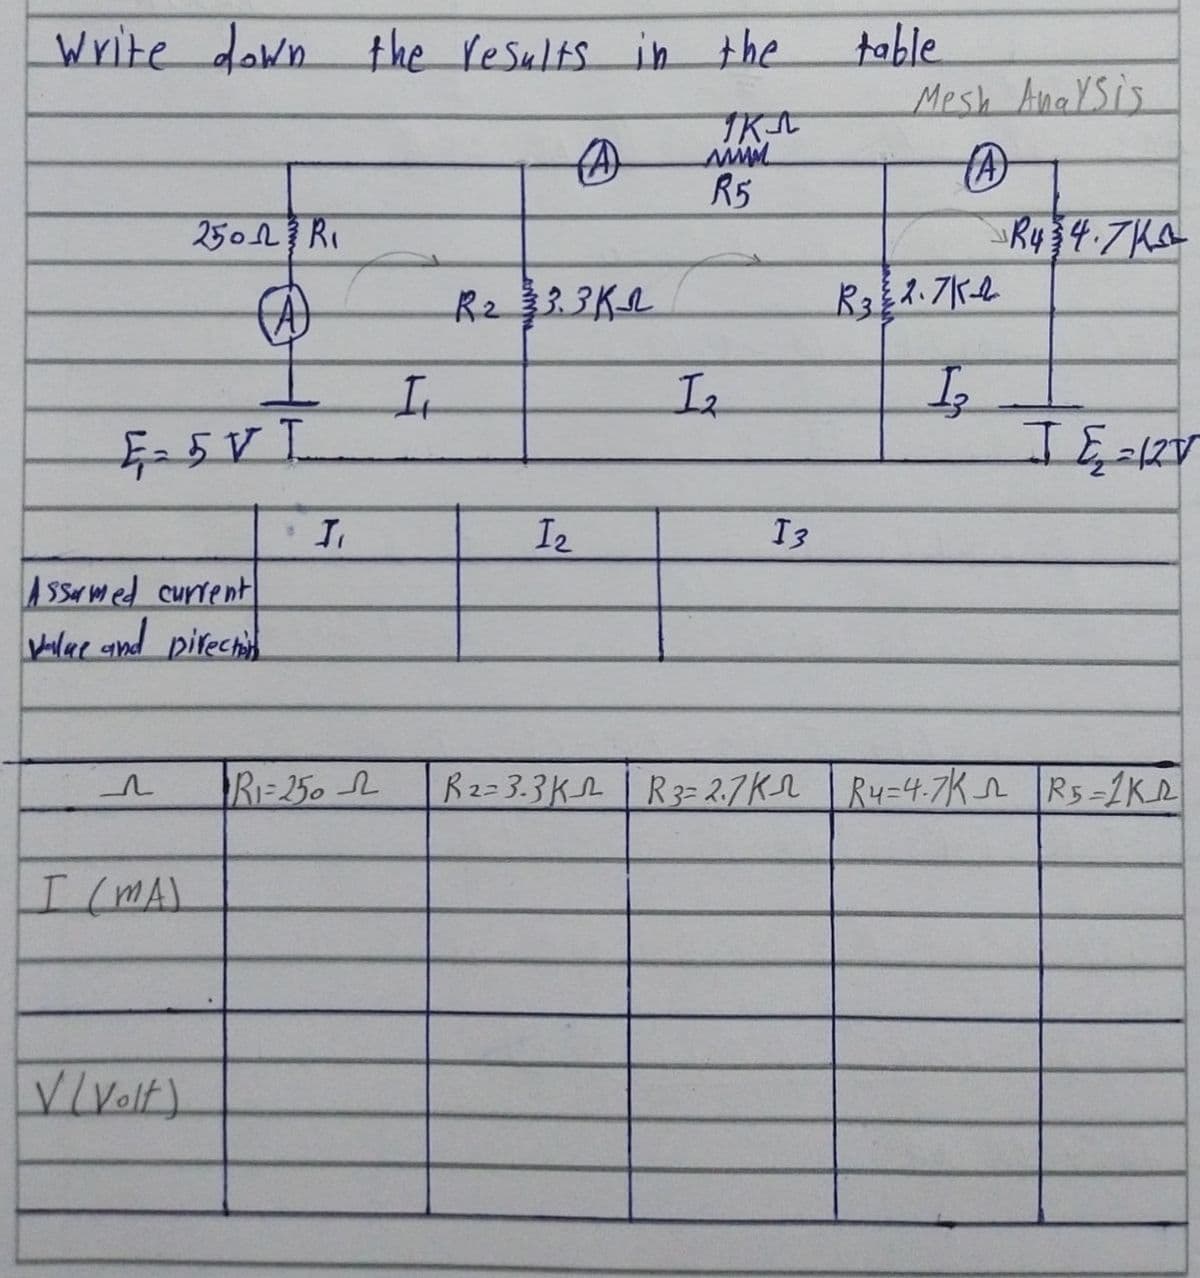 Write down the results in the table
Mesh AnaYSis
1KΩ
A
A
R5
250Ω R1
R4 4.7KΩ
R2 3.3KΩ
R3 2.7KΩ
A
I1
I2
I3
E1=5V
E2=12V
I1 I2 I3
Assumed current
Value and Direction
Ω R1=250Ω R2=3.3KΩ R3=2.7KΩ R4=4.7KΩ R5=1KΩ
I (mA)
V(Volt)